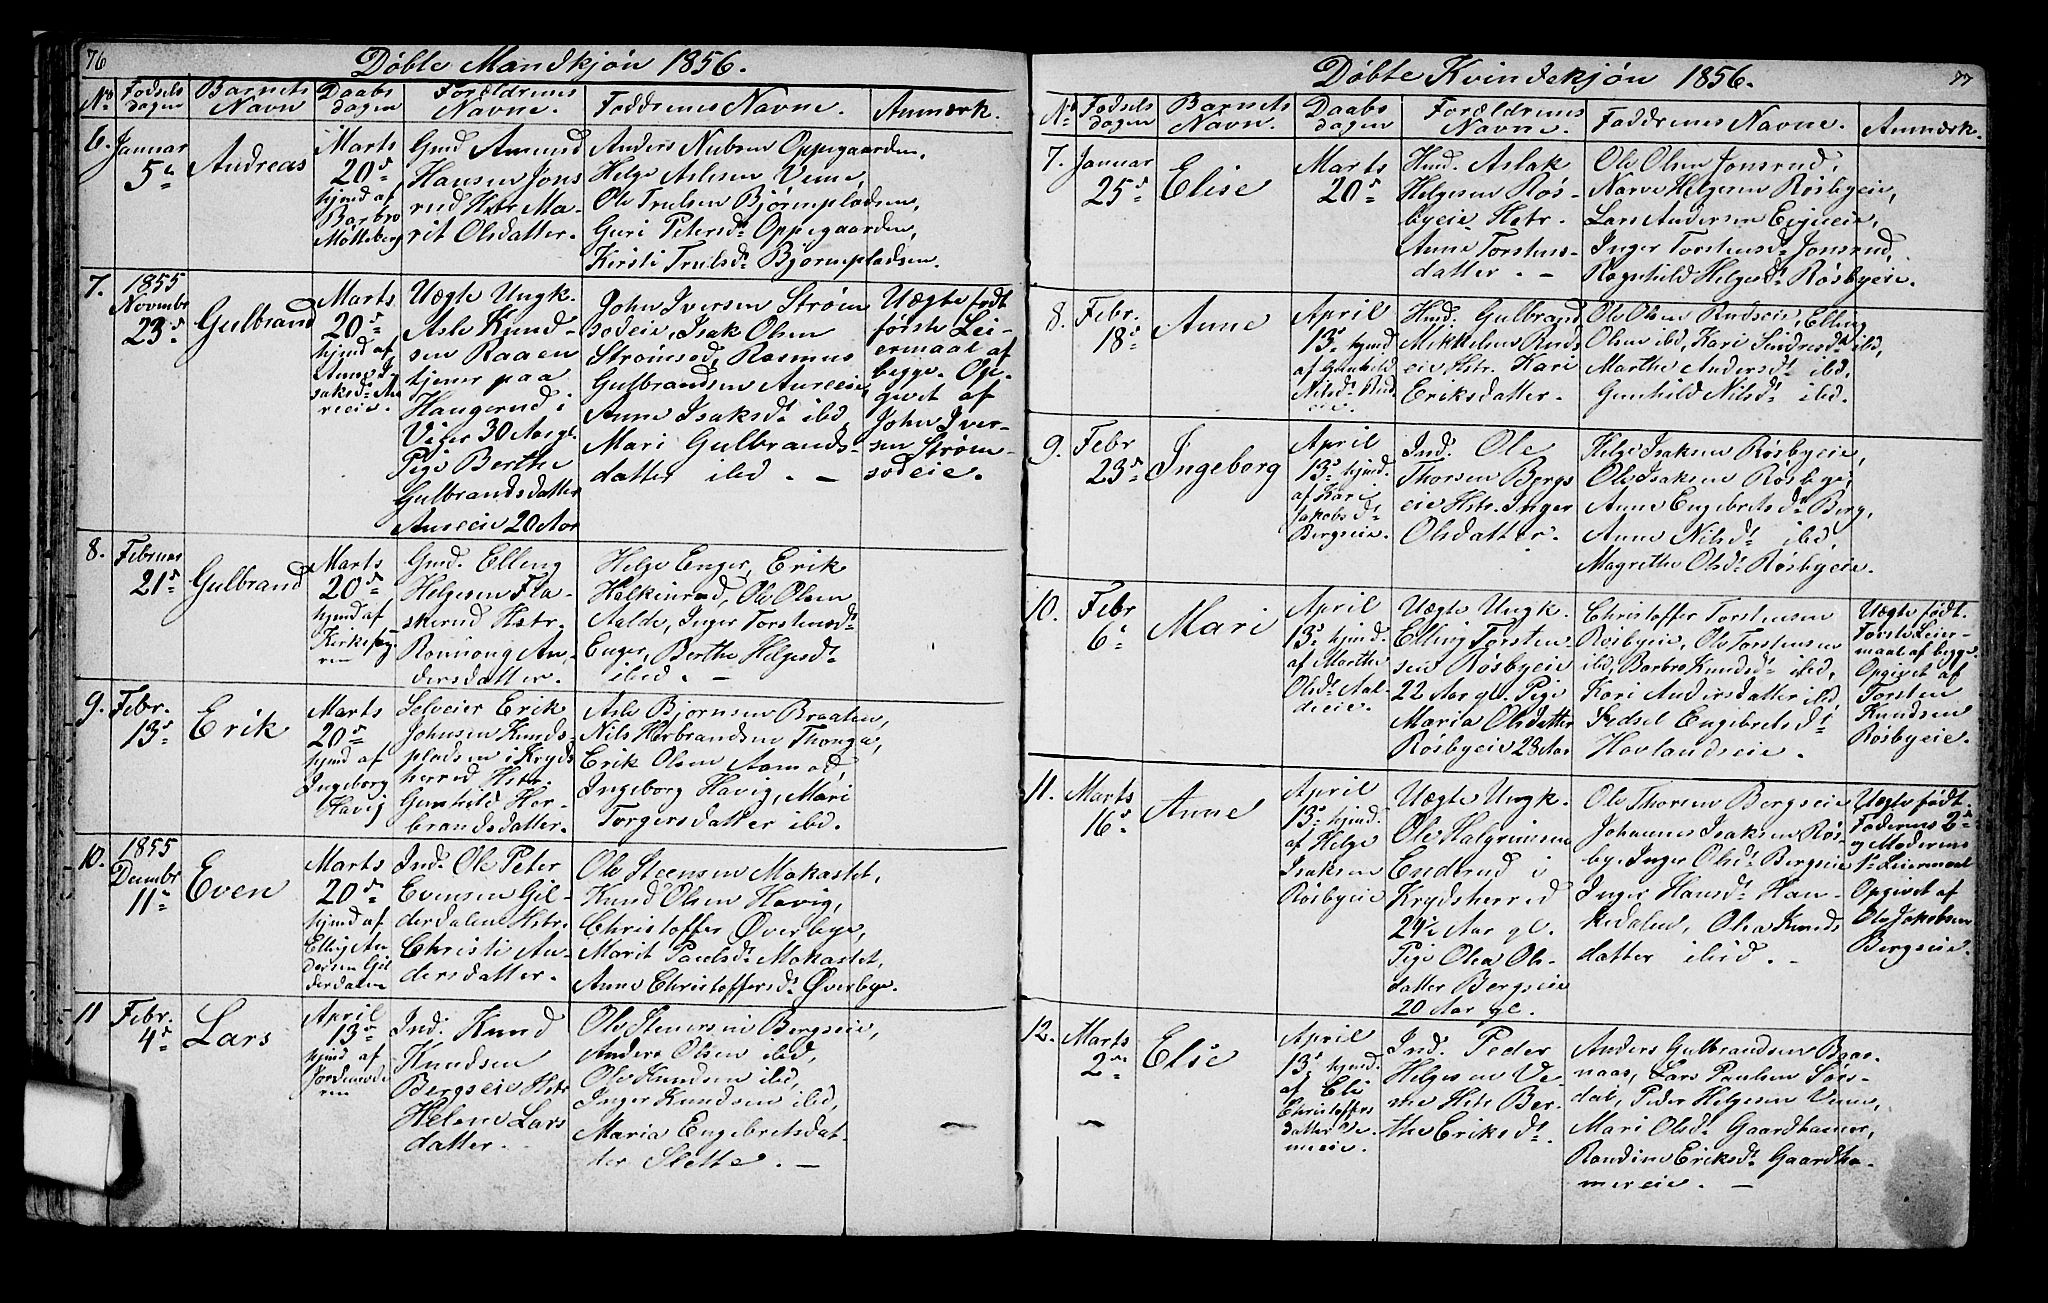 76
Döbte Mandkjön 1856.
No. Födsels dagen Barnets Navn Daabs dagen Forældrenes Navne. Faddrenes Navne. Anmærk.
6. Januar 5te
Andreas
Marts
20de
hjmd af
Barbro
Molleberg
Gmd Amund
Hansen Jons
rud Hstr Ma-
rit Olsdatter.
Anders Nielsen Oppegaarden,
Helge Aslesen Veme,
Ole Trulsen Björnepladsen,
Guri Petersdr Oppegaarden,
Kirsti Trulsdr Björnepladsen.
7. 1855
Novembr
23de
Gulbrand
Marts
20de
hjmd af
Anne I-
saksdr Au-
reeie.
Uægte Ungk.
Asle Knud-
sen Raaen
tjener paa
Haugerud i
Viger 30 Aar gl.
Pige Berthe
Gulbrandsdatter
Aureeie 20 Aar
John Iversen Ström-
sodeie, Isak Olsen
Strömsod, Rasmus
Gulbrandsen Aureeie,
Anne Isaksdr ibid,
Mari Gulbrands-
datter ibid. -
Uægte födt
förste Lei-
ermaal af
begge. Op-
givet af
John Iver-
sen Ström-
sodeie.
8. Februar
21de
Gulbrand
Marts
20de
hjmd af
Kirkesan-
ren
Gmd. Elling
Helgesen Fla-
skerud Hstr.
Romiong An-
dersdatter.
Helge Enger, Erik
Halkinrud, Ole Olsen
Aalde, Inger Torstensdr
Enger, Berthe Helgesdr
ibid. -
9. Febr.
13de
Erik
Marts
20de
hjmd af
Ingeborg
Havig
Selveier Erik
Johnsen Knuds-
pladsen i Kryds
herred Hstr.
Gunhild Her-
brandsdatter.
Asle Björnsen Braaten,
Nils Herbrandsen Thonga,
Erik Olsen Aamod,
Ingeborg Havig, Mari
Torgersdatter ibid.
10. 1855
Decembr
11te
Even
Marts
20de
hjmd af
Elling An-
dersen Gil
derdalen
Ind. Ole Peter
Evensen Gil-
derdalen Hstr.
Christi An-
dersdatter.
Ole Steensen Mokastet,
Knud Olsen Havig,
Christoffer Överbye,
Marit Paulsdr Mokastet,
Anne Christoffersdr Överbye.
11 Febr.
4de
Lars
April
13de
hjmd af
Jordemode
ren
Ind. Knud
Knudsen
Bergseie Hstr
Helene Lars
datter.
Ole Stenersen Bergseie,
Anders Olsen ibid,
Ole Knudsen ibid,
Inger Knudsen ibid,
Maria Engebretsdat-
ter Slette. -
77
Döbte Kvindekjön 1856.
No. Födsels dagen Barnets Navn. Daabs dagen Forældrenes Navne. Faddrenes Navne. Anmærk.
7. Januar
25de
Elise
Marts
20de
Hmd. Aslak
Helgesen Rös-
byeie Hstr.
Anne Torstens-
datter. -
Ole Olsen Jonsrud,
Narve Helgesen Rösbyeie,
Lars Andersen Eijeeie,
Inger Torstensdr Jonsrud,
Ragnhild Helgesdr Rösbyeie.
8. Febr.
18de
Anne
April
13de hjmd
af Gunhild
Nilsdr Rud
eie.
Hmd. Gulbrand
Mikkelsen Ruds
eie Hstr. Kari
Eriksdatter.
Ole Olsen Rudseie, Elling
Olsen ibid, Kari Sindresdr ibid,
Marthe Andersdr ibid,
Gunhild Nilsdr ibid.
9. Febr
23de
Ingeborg
April
13de hjmd.
af Kari
Jakobsdr
Bergseie.
Ind. Ole
Thorsen Bergs
eie Hstr. Inger
Olsdatter.
Helge Isaksen Rösbyeie,
Ole Isaksen Rösbye,
Anne Engebretsdr Berg,
Anne Nilsdr ibid,
Magrethe Olsdr Rösbyeie.
10. Febr
6te
Mari
April
13de hjmd.
af Marthe
Olsdr Aal-
deeie.
Uægte Ungk.
Elling Torsten
sen Rösbyeie
22 Aar gl. Pige
Maria Olsdatter
Rösbyeie 28 Aar
Christoffer Torstensen
Rösbyeie, Ole Torstensen
ibid, Barbro Knudsdr ibid,
Kari Andersdatter ibid,
Sidsel Engebretsdr
Hovlandseie.
Uægte födt.
Förste Leier-
maal af begge.
Opgivet af
Torsten
Knudsen
Rösbyeie.
11. Marts
16de
Anne
April
13de hjmd.
af Helge
Isaksen
Rösbyeie
Uægte Ungk.
Ole Halgrimsen
Endrud i
Krydsherred
29½ Aar gl.
Pige Olea Ols-
datter Bergseie
20 Aar gl.
Ole Thorsen Bergseie
Johannes Isaksen Rös-
bye, Inger Olsdr Bergseie
Inger Hansdr Han-
kedalen, Olea Knuds
datter ibid. -
Uægte födt.
Faderens 2de
og Moderens
1ste Leiermaal
Opgivet af
Ole Jakobsen
Bergseie.
12. Marts
2den
Elise
April
13de hjmd.
af Eli
Christoffers
datter Ve-
meeie.
Ind. Peder
Helgesen Ve-
stre Hstr Ber-
the Eriksdr.
Anders Gulbrandsen Baas-
naas, Lars Paulsen Sörs-
dal, Peder Helgesen Veme,
Mari Olsdr Gaardhamer,
Randine Eriksdr Gaardha-
mereie. -